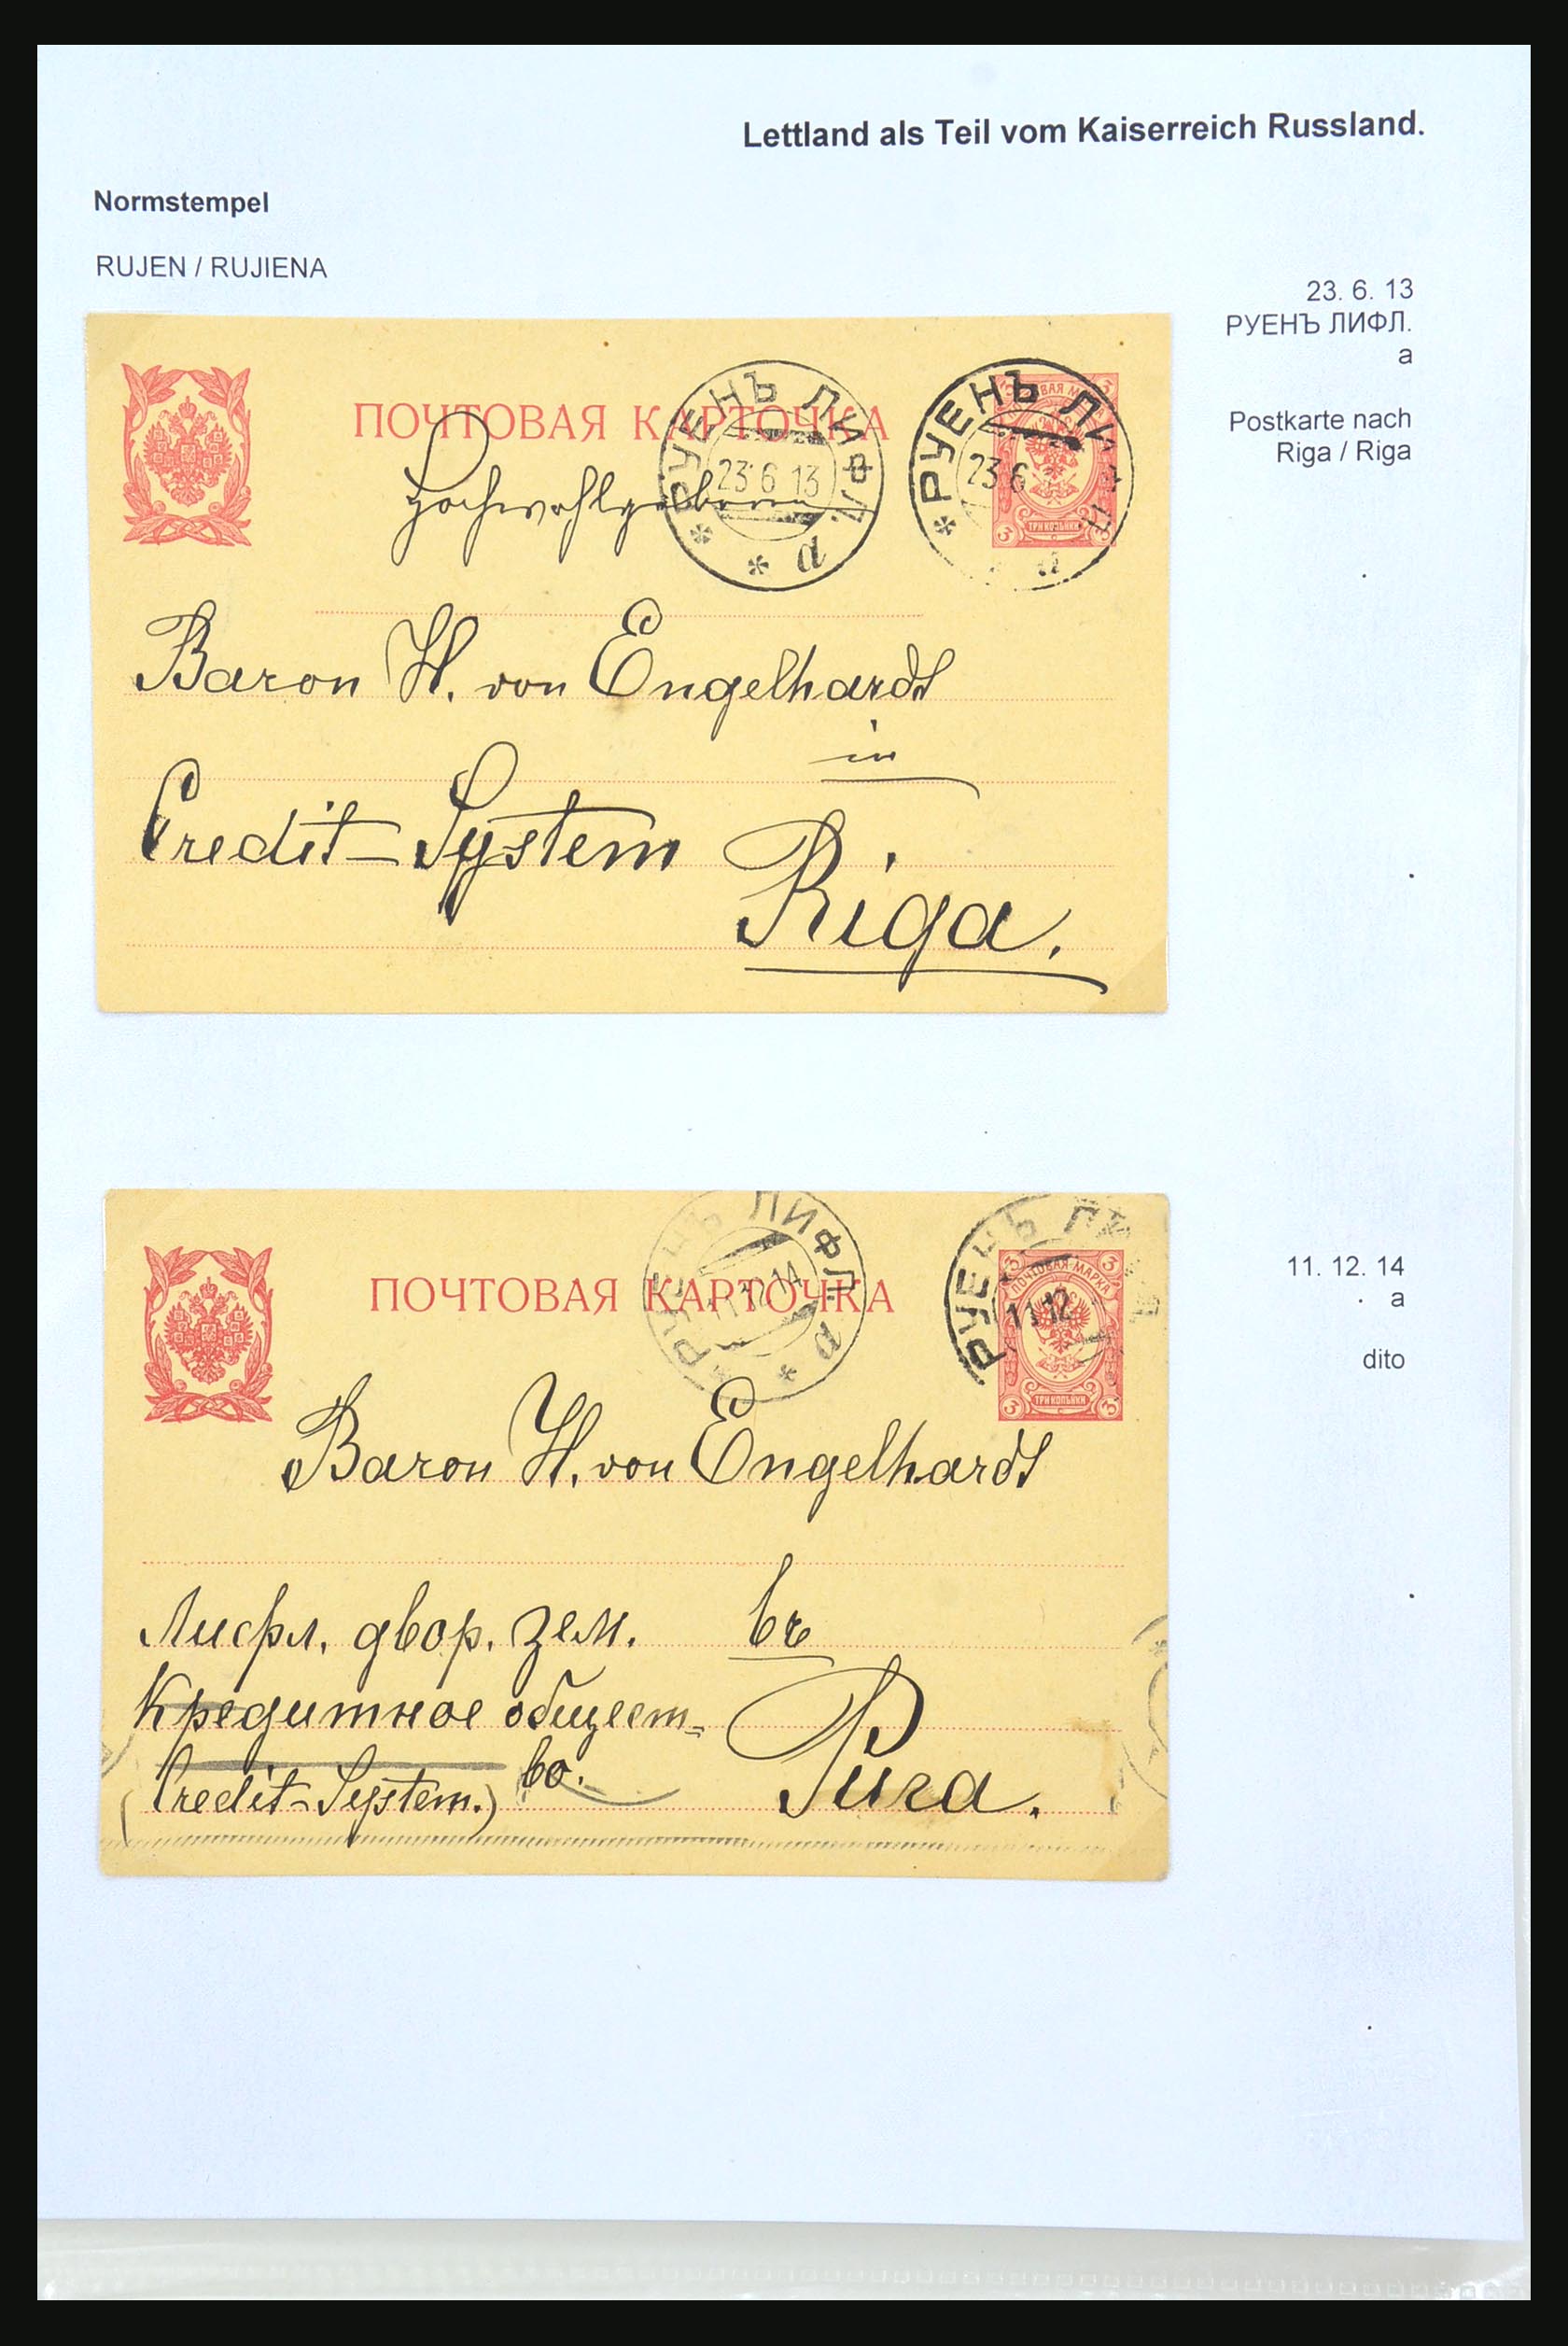 Lettland als Teil vom Kaiserreich Russland.
Normstempel
RUJEN / RUJIENA
23. 6. 13
РУЕНЪ ЛИФЛ.
a
Postkarte nach
Riga / Riga
ПОЧТОВАЯ КАРТОЧКА
РУЕНЪ ЛИФЛ.
23 6 13
а
РУЕНЪ ЛИФЛ.
23 6
ТРИ КОПѢЙКИ
3 3
Hochwohlgeboren
Baron H. von Engelhardt
in
Credit-System
Riga.
11. 12. 14
a
dito
ПОЧТОВАЯ КАРТОЧКА
РУЕНЪ ЛИФЛ.
11 12 14
а
РУЕНЪ
11 12
3 3
ПОЧТОВАЯ МАРКА
ТРИ КОПѢЙКИ
3 3
Baron H. von Engelhardt
Лифл. двор. зем. въ
Кредитное общест=
во.
(Credit-System.)
Рига.